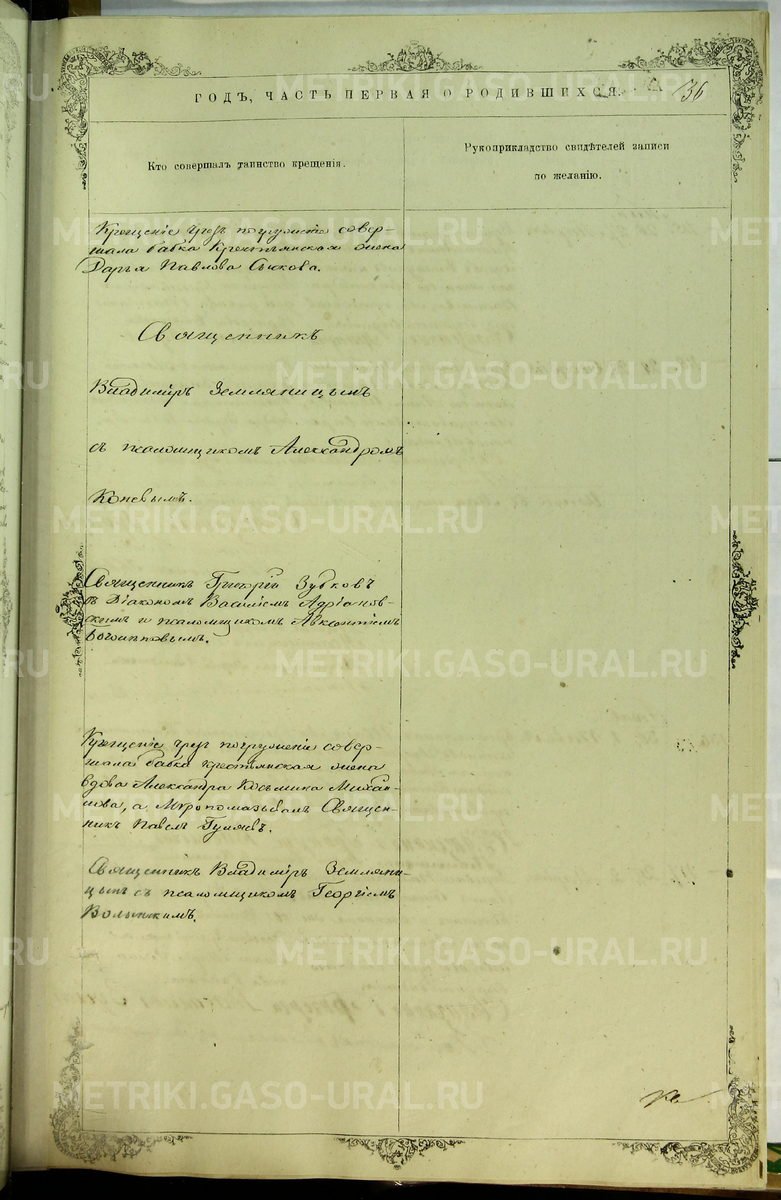 36
ГОДЪ, ЧАСТЬ ПЕРВАЯ О РОДИВШИХСЯ.
Кто совершалъ таинство крещенія.
Рукоприкладство свидѣтелей записи
по желанію.
Крещеніе чрезъ погруженіе совер-
шала бабка Крестьянская жена
Дарья Павлова Сычкова.
Священникъ
Владиміръ Земляницынъ
съ псаломщикомъ Александромъ
Коневымъ.
Священникъ Григорій Зубковъ
съ Діакономъ Василіемъ Адріанов-
скимъ и псаломщикомъ Авксентіемъ
Крещеніе чрез погруженіе совер-
шала бабка крестьянская жена
вдова Александра Косьмина Михай-
лова, а Мѵропомазывалъ Священ-
никъ Павелъ Гуляевъ.
Священникъ Владиміръ Земляни-
цынъ съ псаломщикомъ Георгіемъ
Волынкимъ.
METRIKI.GASO-URAL.RU